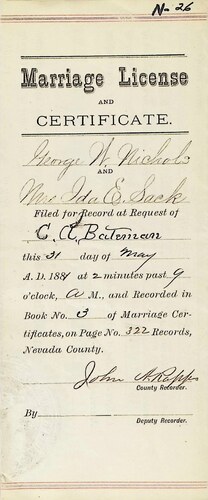 No 26
Marriage License
AND
CERTIFICATE.
George W. Nichols
AND
Mrs Ida E. Sack
Filed for Record at Request of
C. A. Bateman
this 31 day of May
A. D. 1881 at 2 minutes past 9
o'clock, A M., and Recorded in
Book No. 3 of Marriage Cer-
tificates, on Page No. 322 Records,
Nevada County.
John A. Rapp
County Recorder.
By
Deputy Recorder.